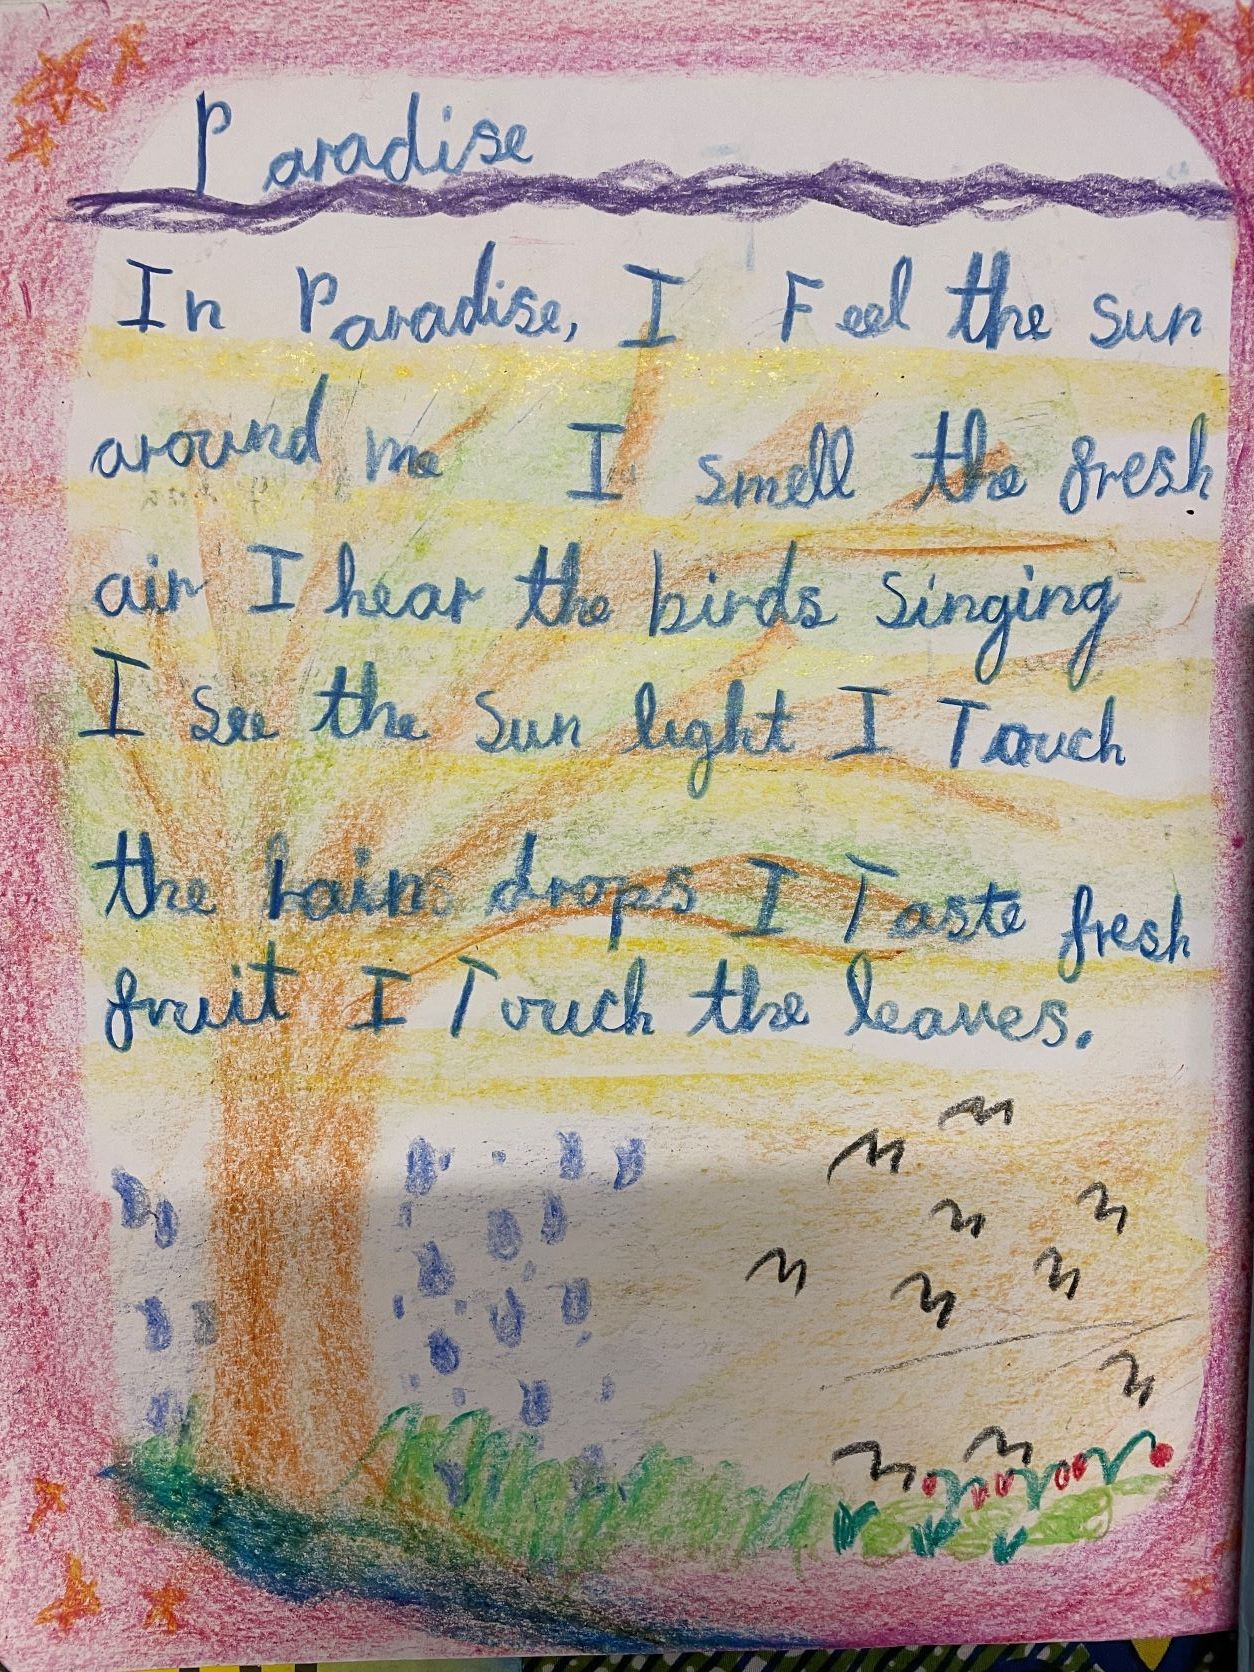 Paradise
In Paradise, I Feel the sun
around me I smell the fresh
air I hear the birds singing
I see the sun light I Touch
the rains drops I Taste fresh
fruit I Touch the leaves.